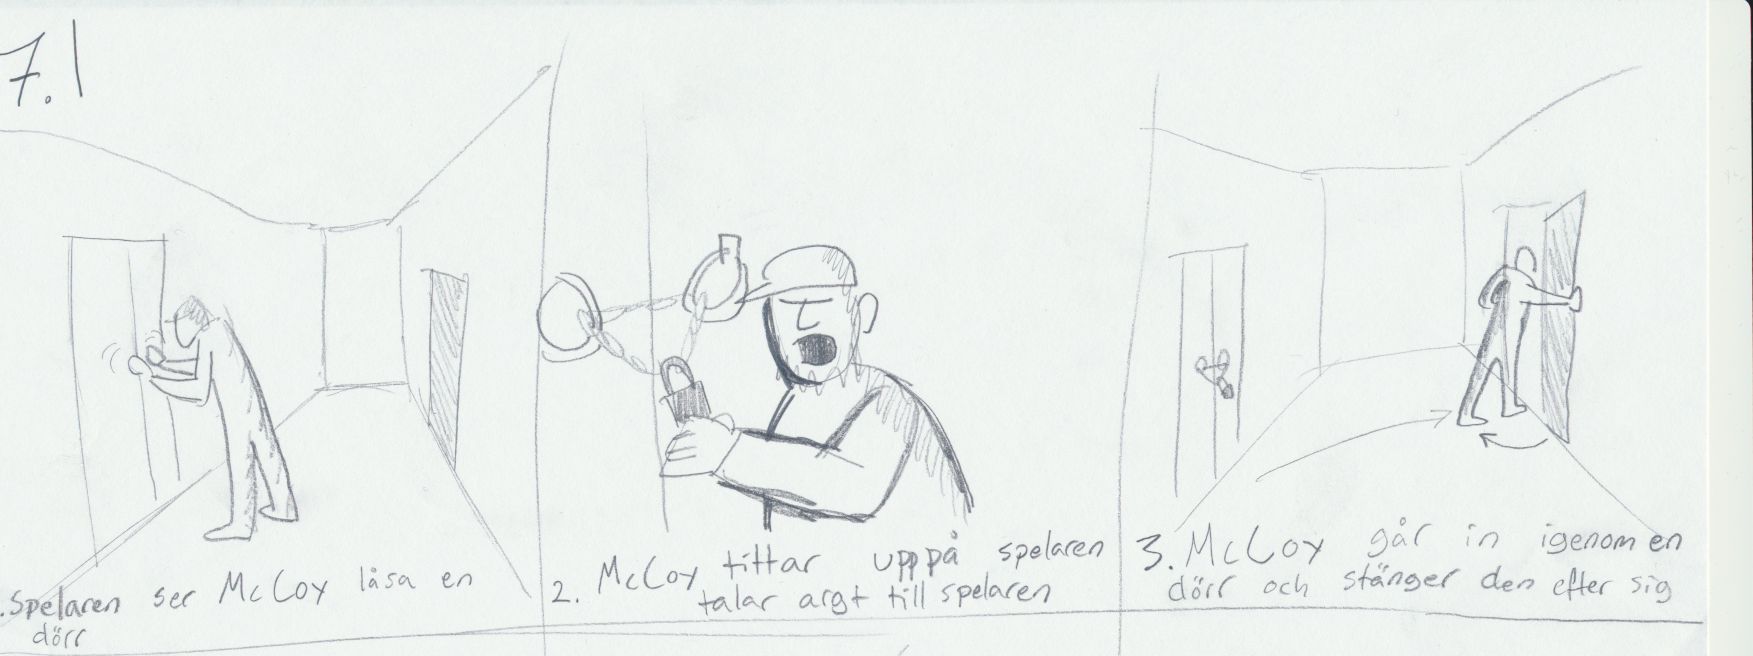 7.1
1. Spelaren ser McCoy låsa en
dörr
2. McCoy tittar upp på spelaren
talar argt till spelaren
3. McCoy går in igenom en
dörr och stänger den efter sig